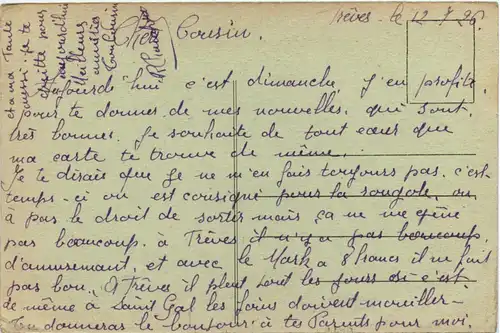 Trèves le 12-7-26
Cher Cousin.
Aujourd'hui c'est dimanche, J'en profite
pour te donner de mes nouvelles, qui sont
très bonnes. Je souhaite de tout cœur que
ma carte te trouve de même.
Je te dirais que je ne m'en fais toujours pas. c'est
temps-ci on est consigné pour la rougole, on
à pas le droit de sortir mais ça ne me gêne
pas beaucoup. à Trèves il n'y a pas beaucoup
d'amusement et avec le Mark a 8 francs il ne fait
pas bon. A Trèves il pleut tout les jours si c'est
de même à Saint Gal les foins doivent mouiller-
Tu donneras le bonjour à tes Parents pour moi.
et a ma Tante
aussi. je te
quitte pour
aujourd'hui
Meilleurs
amitiés
Ton Cousin